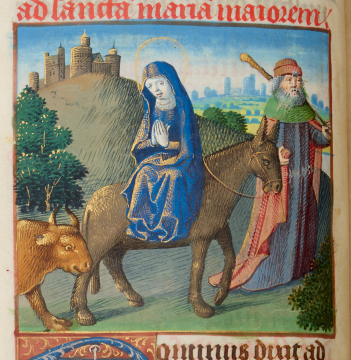 ad sanctā mariā maiorem
ominus dixit ad